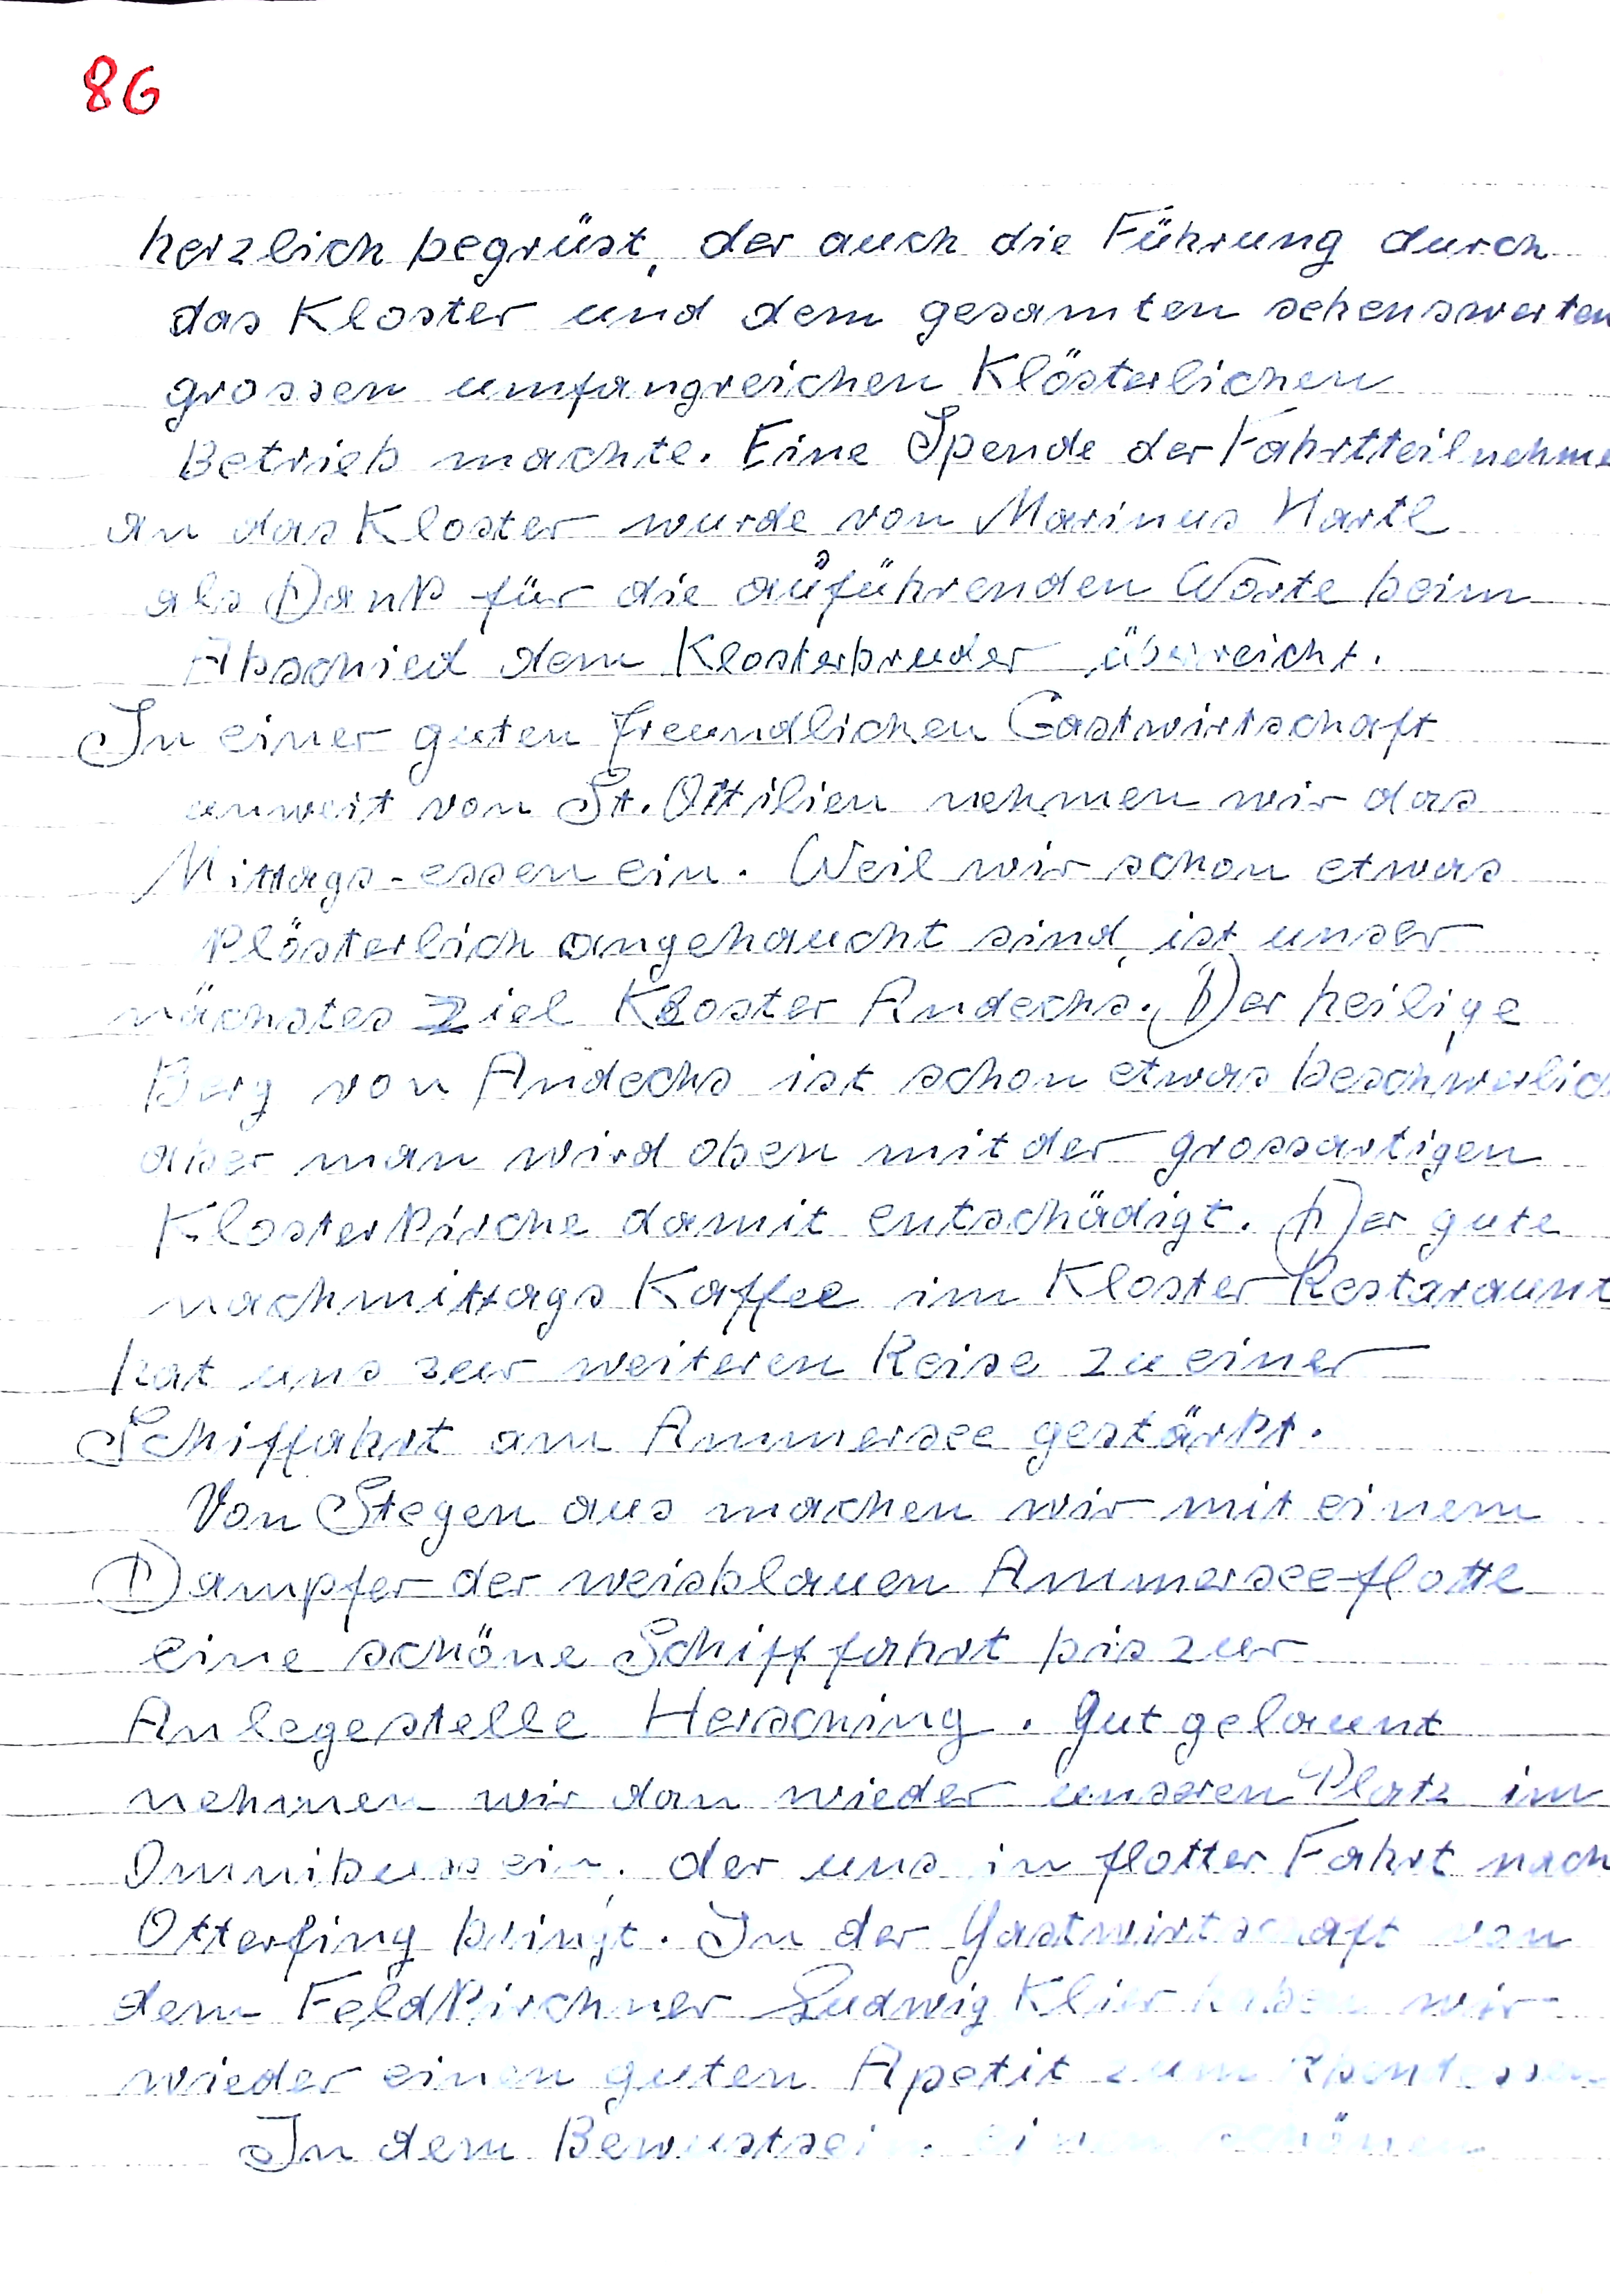 86
herzlich begrüst, der auch die Führung durch
das Kloster und dem gesamten sehenswerten
grossen umfangreichen Klösterlichen
Betrieb machte. Eine Spende der Fahrtteilnehme
an das Kloster wurde von Marinus Hartl
als Dank für die ausführenden Worte beim
Abschied dem Klosterbruder überreicht.
In einer guten freundlichen Gastwirtschaft
unweit von St. Ottilien nehmen wir das
Mittags-essen ein. Weil wir schon etwas
klösterlich angehaucht sind, ist unser
nächstes Ziel Kloster Andechs. Der heilige
Berg von Andechs ist schon etwas beschwerlich
aber man wird oben mit der grossartigen
Klosterkirche damit entschädigt. Der gute
nachmittags Kaffee im Kloster Restaraunt
hat uns zur weiteren Reise zu einer
Schiffahrt am Ammersee gestärkt.
Von Stegen aus machen wir mit einem
Dampfer der weisblauen Ammersee-flotte
eine schöne Schifffahrt bis zur
Anlegestelle Hersching. Gut gelaunt
nehmen wir dan wieder unseren Platz im
Omnibuss ein, der uns in flotter Fahrt nach
Otterfing bringt. In der Gastwirtschaft von
dem Feldkirchner Ludwig Klier haben wir
wieder einen guten Apetit zum Abendessen.
In dem Bewustsein einen schönen